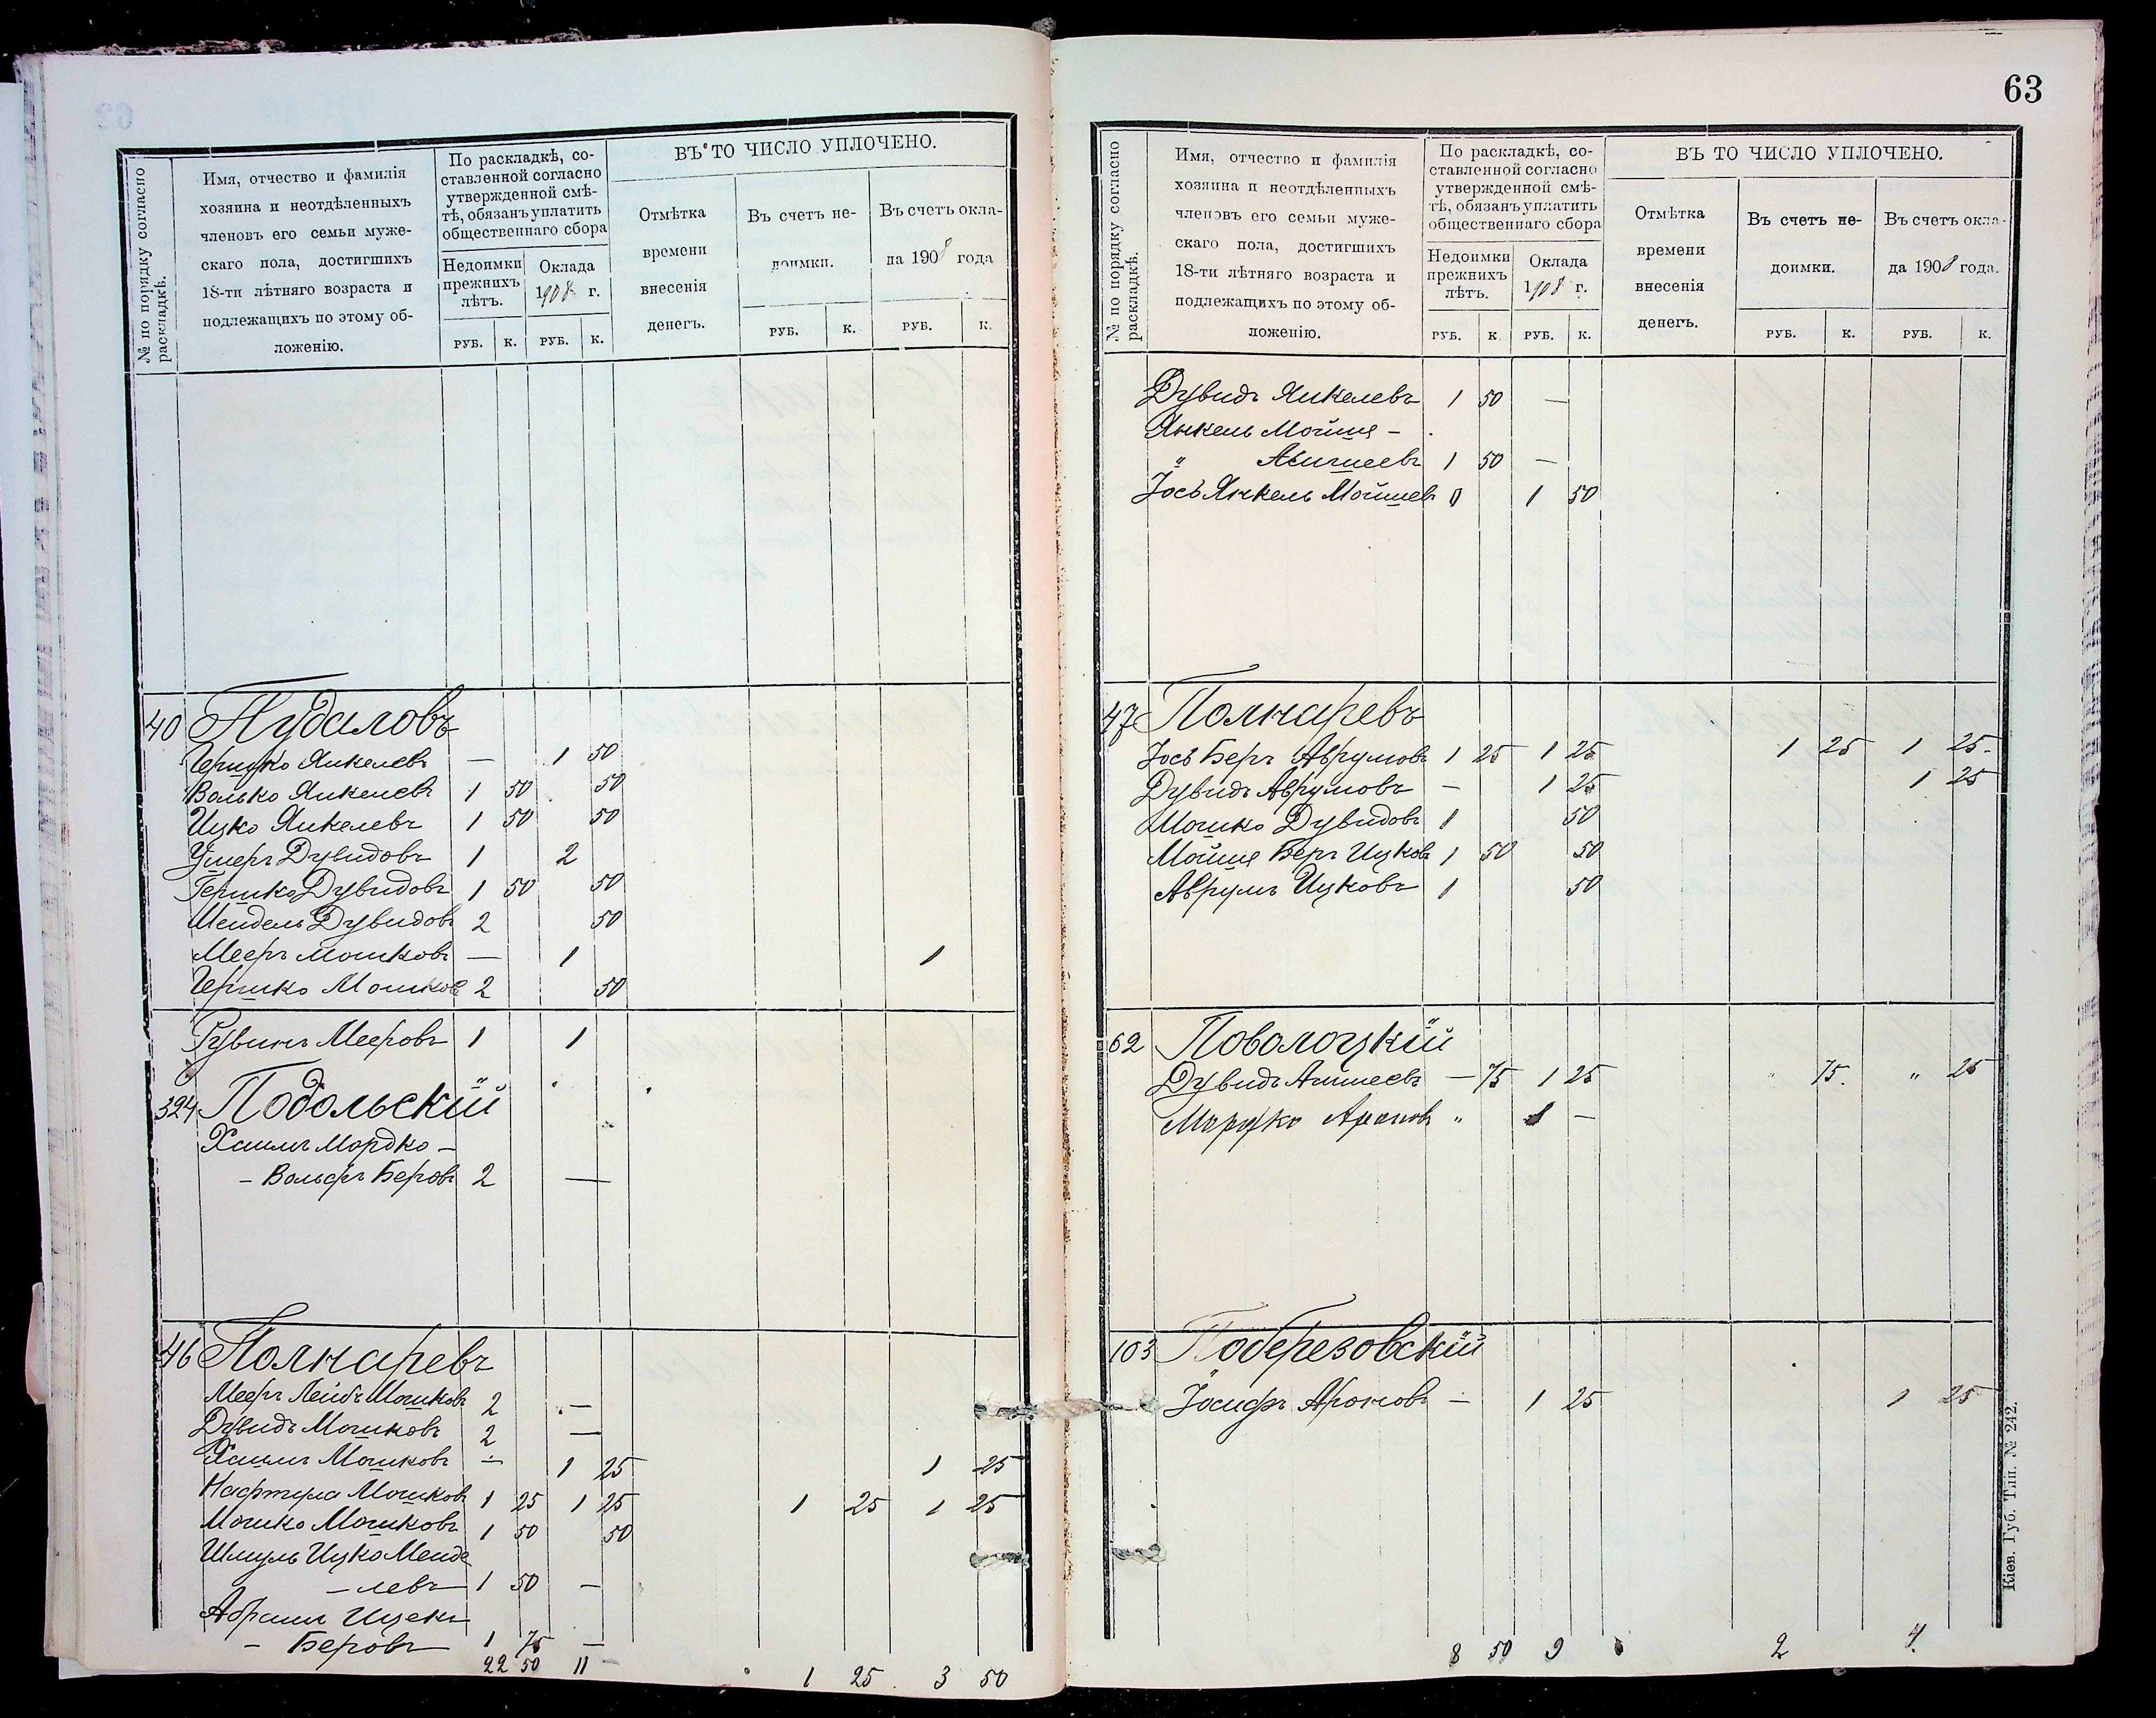 № по порядку согласно раскладкѣ.
Имя, отчество и фамилія
хозяина и неотдѣленныхъ
членовъ его семьи муже-
скаго пола, достигшихъ
18-ти лѣтняго возраста и
подлежащихъ по этому об-
ложенію.
По раскладкѣ, со-
ставленной согласно
утвержденной смѣ-
тѣ, обязанъ уплатить
общественнаго сбора
Недоимки
прежнихъ
лѣтъ.
Оклада
1908 г.
РУБ. К. РУБ. К.
ВЪ ТО ЧИСЛО УПЛОЧЕНО.
Отмѣтка
времени
внесенія
денегъ.
Въ счетъ не-
доимки.
Въ счетъ окла-
да 1908 года
РУБ. К. РУБ. К.
40 Пудаловъ
Гершко Янкелевъ — 1 50
Волько Янкелевъ 1 50 50
Ицко Янкелевъ 1 50 50
Умеръ Дувидовъ 1 2
Гершко Дувидовъ 1 50 50
Мендель Дувидовъ 2 50
Мееръ Мошковъ — 1 1
Гершко Мошковъ 2 50
Рувинъ Мееровъ 1 1
324 Подольскій
Хаимъ Мордко —
— Вольфъ Беровъ 2 —
46 Полнаревъ
Мееръ Лейбъ Мошковъ 2 —
Дувидъ Мошковъ 2 —
Хаимъ Мошковъ — 1 25 1 25
Нафтула Мошковъ 1 25 1 25 1 25 1 25
Мошко Мошковъ 1 50 50
Шмуль Ицко Менде
— левъ 1 50 —
Абрамъ Ицекъ
— Беровъ 1 75 —
22 50 11 — 1 25 3 50
63
№ по порядку согласно раскладкѣ.
Имя, отчество и фамилія
хозяина и неотдѣленныхъ
членовъ его семьи муже-
скаго пола, достигшихъ
18-ти лѣтняго возраста и
подлежащихъ по этому об-
ложенію.
По раскладкѣ, со-
ставленной согласно
утвержденной смѣ-
тѣ, обязанъ уплатить
общественнаго сбора
Недоимки
прежнихъ
лѣтъ.
Оклада
1908 г.
РУБ. К РУБ. К.
ВЪ ТО ЧИСЛО УПЛОЧЕНО.
Отмѣтка
времени
внесенія
денегъ.
Въ счетъ не-
доимки.
Въ счетъ окла-
да 1908 года.
РУБ. К. РУБ. К.
Дувидъ Янкелевъ 1 50 —
Янкель Мойше —
" 1 50 —
Іось Янкель Мойшев 1 50
47 Полнаревъ
Іось Беръ Аврумовъ 1 25 1 25 1 25 1 25
Дувидъ Аврумовъ — 1 25 1 25
Мошко Дувидовъ 1 50
Мойше Беръ Ицковъ 1 50 50
Аврумъ Ицковъ 1 50
62 Поволоцкій
Дувидъ Аншеевъ — 75 1 25 75 " 25
Ароновъ " 1 —
103 Поберезовскій
Іосифъ Ароновъ — 1 25 1 25
8 50 9 2 4
Кіев. Губ. Тип. № 242.